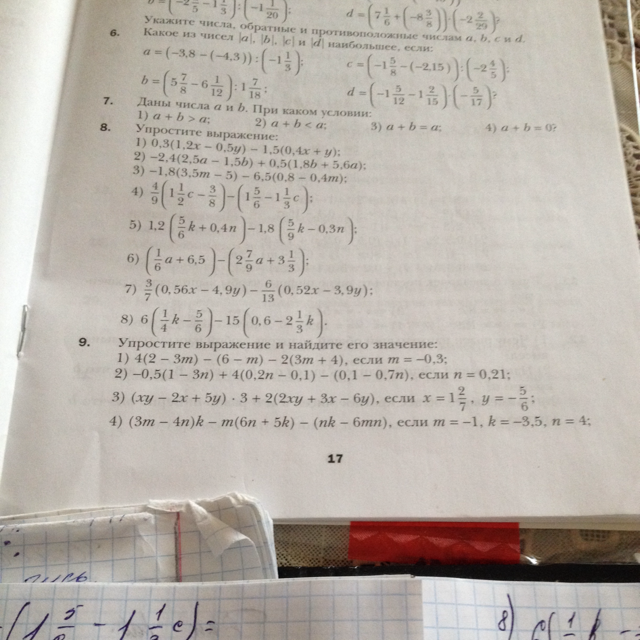 b = (−2 2/5 − 1 1/3) : (−1 1/20). d = (7 1/6 + (−8 3/8)) (−2 2/29)?
Укажите числа, обратные и противоположные числам a, b, c и d.
6. Какое из чисел |a|, |b|, |c| и |d| наибольшее, если:
a = (−3,8 − (−4,3)) : (−1 1/3); c = (−1 5/8 − (−2,15)) : (−2 4/5);
b = (5 7/8 − 6 1/12) : 1 7/18; d = (−1 5/12 − 1 2/15) (−5/17)?
7. Даны числа a и b. При каком условии:
1) a + b > a; 2) a + b < a; 3) a + b = a; 4) a + b = 0?
8. Упростите выражение:
1) 0,3(1,2x − 0,5y) − 1,5(0,4x + y);
2) −2,4(2,5a − 1,5b) + 0,5(1,8b + 5,6a);
3) −1,8(3,5m − 5) − 6,5(0,8 − 0,4m);
4) 4/9 (1 1/2 c − 3/8) − (1 5/6 − 1 1/3 c);
5) 1,2 (5/6 k + 0,4n) − 1,8 (5/9 k − 0,3n);
6) (1/6 a + 6,5) − (2 7/9 a + 3 1/3);
7) 3/7 (0,56x − 4,9y) − 6/13 (0,52x − 3,9y);
8) 6 (1/4 k − 5/6) − 15 (0,6 − 2 1/3 k).
9. Упростите выражение и найдите его значение:
1) 4(2 − 3m) − (6 − m) − 2(3m + 4), если m = −0,3;
2) −0,5(1 − 3n) + 4(0,2n − 0,1) − (0,1 − 0,7n), если n = 0,21;
3) (xy − 2x + 5y) · 3 + 2(2xy + 3x − 6y), если x = 1 2/7, y = −5/6;
4) (3m − 4n)k − m(6n + 5k) − (nk − 6mn), если m = −1, k = −3,5, n = 4;
17
(1 5/6 − 1 1/3 c) =
8)